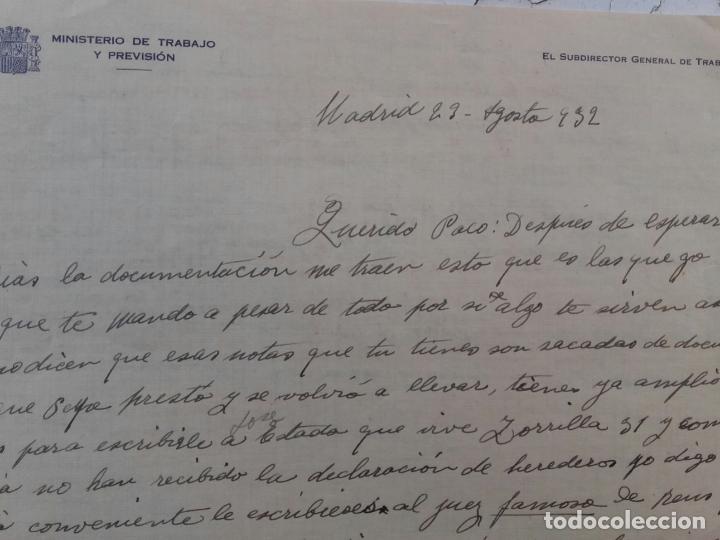 MINISTERIO DE TRABAJO
Y PREVISIÓN
EL SUBDIRECTOR GENERAL DE TRAB
Madrid 23 - Agosto 932
Querido Paco: Después de esperar
ías la documentación me traen esto que es las que yo
que te mando a pesar de todo por si de algo te sirven
dicen que esas notas que tu tienes son sacadas de docu
ue prestó y se volvió a llevar, tienes ya amplio
s para escribirle a José Estado que vive Zorrilla 31 y com
a no han recibido la declaración de herederos yo digo
conveniente le escribieses al juez famoso de Reus
todocoleccion
todocoleccion.net